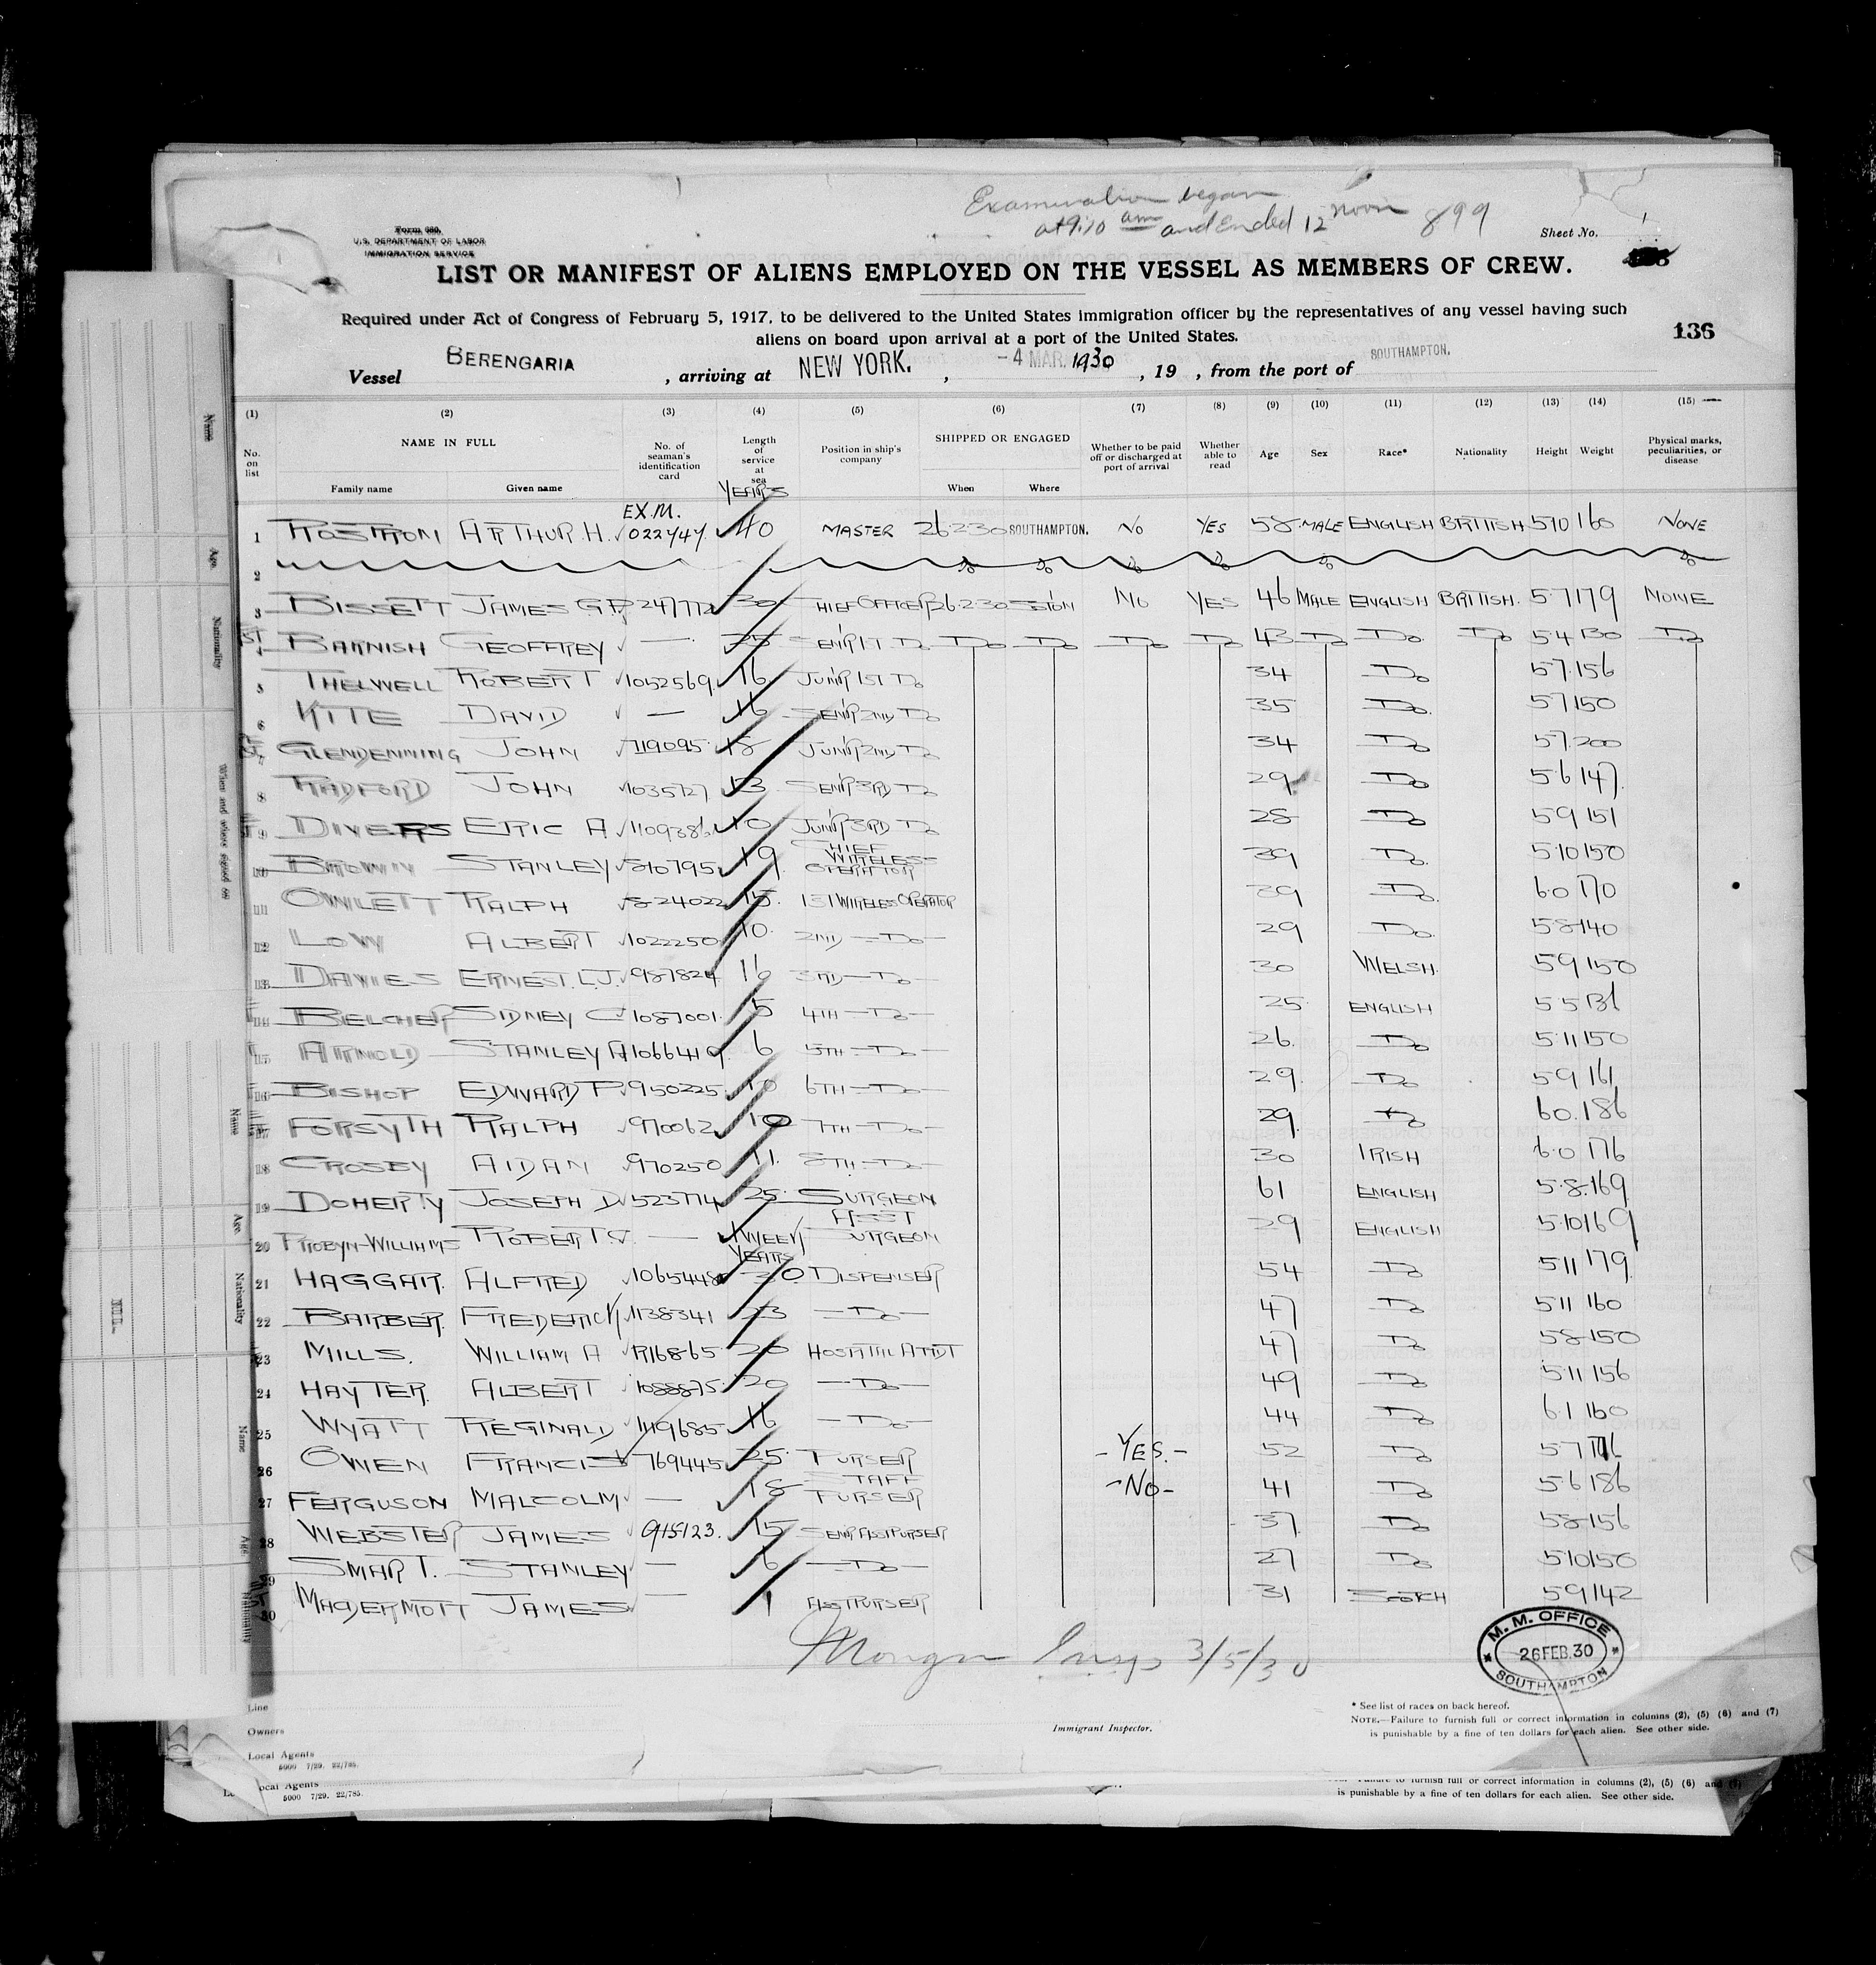 Examination began
at 9:10 am and Ended 12 noon 899
Form 680.
U.S. DEPARTMENT OF LABOR
IMMIGRATION SERVICE
Sheet No.
LIST OR MANIFEST OF ALIENS EMPLOYED ON THE VESSEL AS MEMBERS OF CREW.
Required under Act of Congress of February 5, 1917, to be delivered to the United States immigration officer by the representatives of any vessel having such
aliens on board upon arrival at a port of the United States.
136
Vessel BERENGARIA, arriving at NEW YORK., -4 MAR. 1930, 19 , from the port of SOUTHAMPTON.
(1) (2) (3) (4) (5) (6) (7) (8) (9) (10) (11) (12) (13) (14) (15)
No. on list NAME IN FULL Family name Given name No. of seaman's identification card Length of service at sea YEARS Position in ship's company SHIPPED OR ENGAGED When Where Whether to be paid off or discharged at port of arrival Whether able to read Age Sex Race* Nationality Height Weight Physical marks, peculiarities, or disease
EX.M.
1 ROSTRON ARTHUR.H. 022447. 40 MASTER 26.2.30 SOUTHAMPTON. NO YES 58 MALE ENGLISH BRITISH 5.10 160 NONE
2 Do Do Do Do Do Do
3 BISSETT JAMES G.P. 247772 30 CHIEF OFFICER 26.2.30 S'TON NO YES 46 MALE ENGLISH BRITISH. 5.7 179 NONE
4 BARNISH GEOFFREY — 25 SENR 1ST Do Do Do Do Do 43 Do Do Do 5.4 130 Do
5 THELWELL ROBERT 1052569. 16 JUNR 1ST Do 34 Do 5.7. 156
6 KITE DAVID — 16 SENR 2ND Do 35 Do. 5.7 150
7 GLENDENNING JOHN 719095. 18 JUNR 2ND Do 34 Do 5.7. 200
8 RADFORD JOHN 1035727 13 SENR 3RD Do 29 Do 5.6 147.
9 DIVERS ERIC A 1109386. 10 JUNR 3RD Do 28 Do 5.9 151
10 BROWN STANLEY 810795. 19 CHIEF WIRELESS OPERATOR 39 Do. 5.10 150
11 OWLETT RALPH 824022 15. 1ST WIRELESS OPERATOR 39 Do. 6.0 170
12 LOW ALBERT 1022250 10. 2ND — Do — 29 Do. 5.8 140
13 DAVIES ERNEST. L.J. 987824 16 3RD — Do — 30 WELSH. 5.9 150
14 BELCHER SIDNEY C 1087001. 5 4TH — Do — 25 ENGLISH 5.5 136
15 ARNOLD STANLEY A 1066419. 6 5TH — Do — 26. Do 5.11 150
16 BISHOP EDWARD P. 950225. 10 6TH — Do — 29. Do 5.9 161
17 FORSYTH RALPH 970062. 10 7TH — Do — 29. Do 6.0. 186
18 CROSBY AIDAN 970250 11. 8TH — Do — 30 IRISH 6.0 176
19 DOHERTY JOSEPH D. 523774 25 SURGEON 61 ENGLISH 5.8. 169
20 PROBYN-WILLIAMS ROBERT. J. — 1 WEEK ASST SURGEON 29 ENGLISH 5.10 169
YEARS
21 HAGGAR. ALFRED 1065448 30. DISPENSER 54 Do 5.11 179.
22 BARBER. FREDERICK 1138341 23 — Do — 47 Do 5.11 160
23 MILLS. WILLIAM A R16865. 20 HOSPITAL ATTDT 47 Do 5.8 150
24 HAYTER. ALBERT 1088875. 20 — Do — 49 Do 5.11 156
25 WYATT REGINALD 1119685. 16 — Do — 44 Do 6.1 160
26 OWEN FRANCIS 769445. 25. PURSER - YES. - 52 Do 5.7 176
27 FERGUSON MALCOLM — 18 STAFF PURSER - NO - 41 Do 5.6 186
28 WEBSTER JAMES 915123. 15 SENR ASST PURSER 37. Do 5.8 156
29 SMART. STANLEY — 6 — Do — 27 Do 5.10 150
30 MACDERMOTT JAMES — 1 ASST PURSER 31 SCOTCH 5.9 142
3/5/30
M. M. OFFICE
26 FEB. 30
SOUTHAMPTON
Line
Owners
Local Agents
5000 7/29. 22/785.
Immigrant Inspector.
* See list of races on back hereof.
NOTE.—Failure to furnish full or correct information in columns (2), (5) (6) and (7)
is punishable by a fine of ten dollars for each alien. See other side.
ocal Agents
5000 7/29. 22/785.
furnish full or correct information in columns (2), (5) (6) and (7)
is punishable by a fine of ten dollars for each alien. See other side.